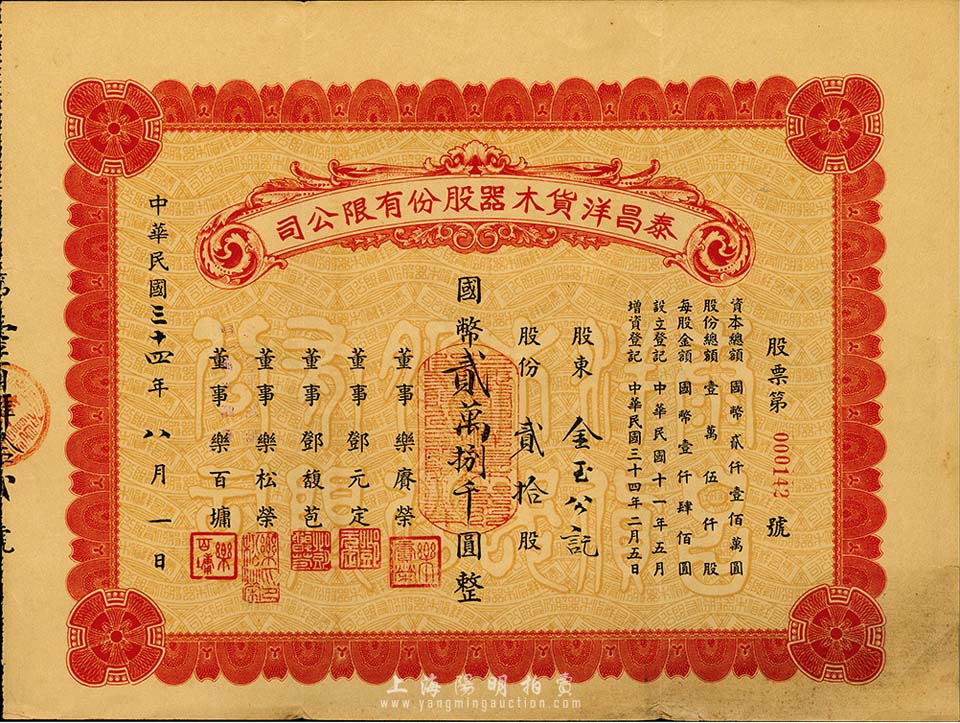 泰昌洋貨木器股份有限公司
股票第 000142 號
資本總額 國幣貳仟壹佰萬圓
股份總額 壹萬伍仟股
每股金額 國幣壹仟肆佰圓
設立登記 中華民國十一年五月
增資登記 中華民國三十四年二月五日
股東 金玉公記
股份 貳拾股
國幣貳萬捌千圓整
董事 樂賡榮
董事 鄧元定
董事 鄧馥苞
董事 樂松榮
董事 樂百墉
中華民國三十四年 八月 一日
上海陽明拍賣
www.yangmingauction.com